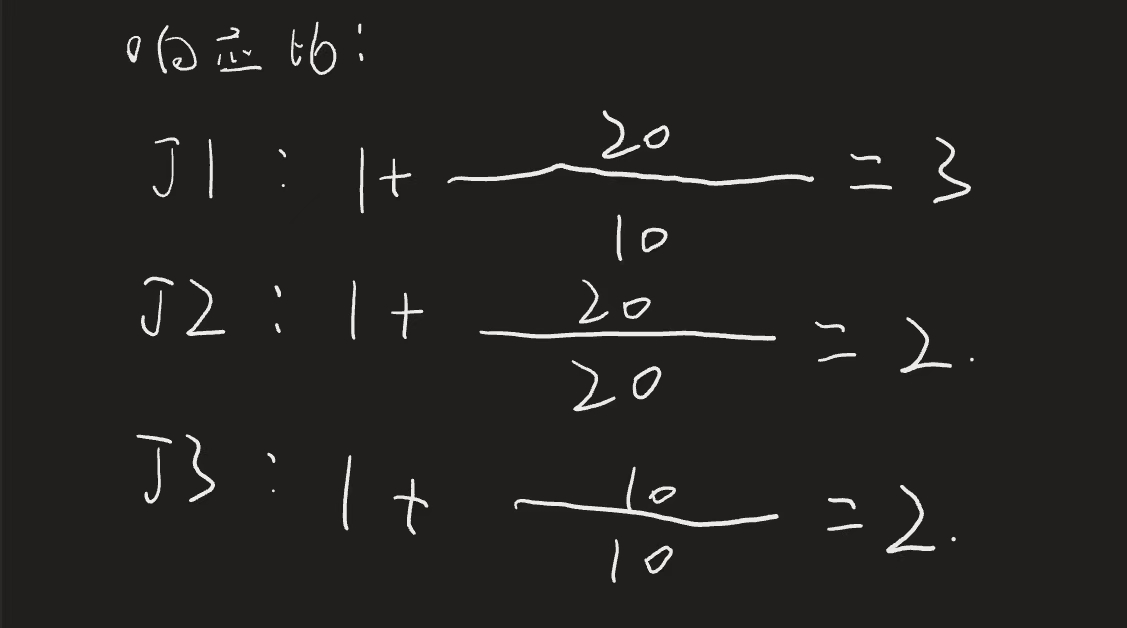 响应比:
J1 : 1 + 20/10 = 3
J2 : 1 + 20/20 = 2.
J3 : 1 + 10/10 = 2.